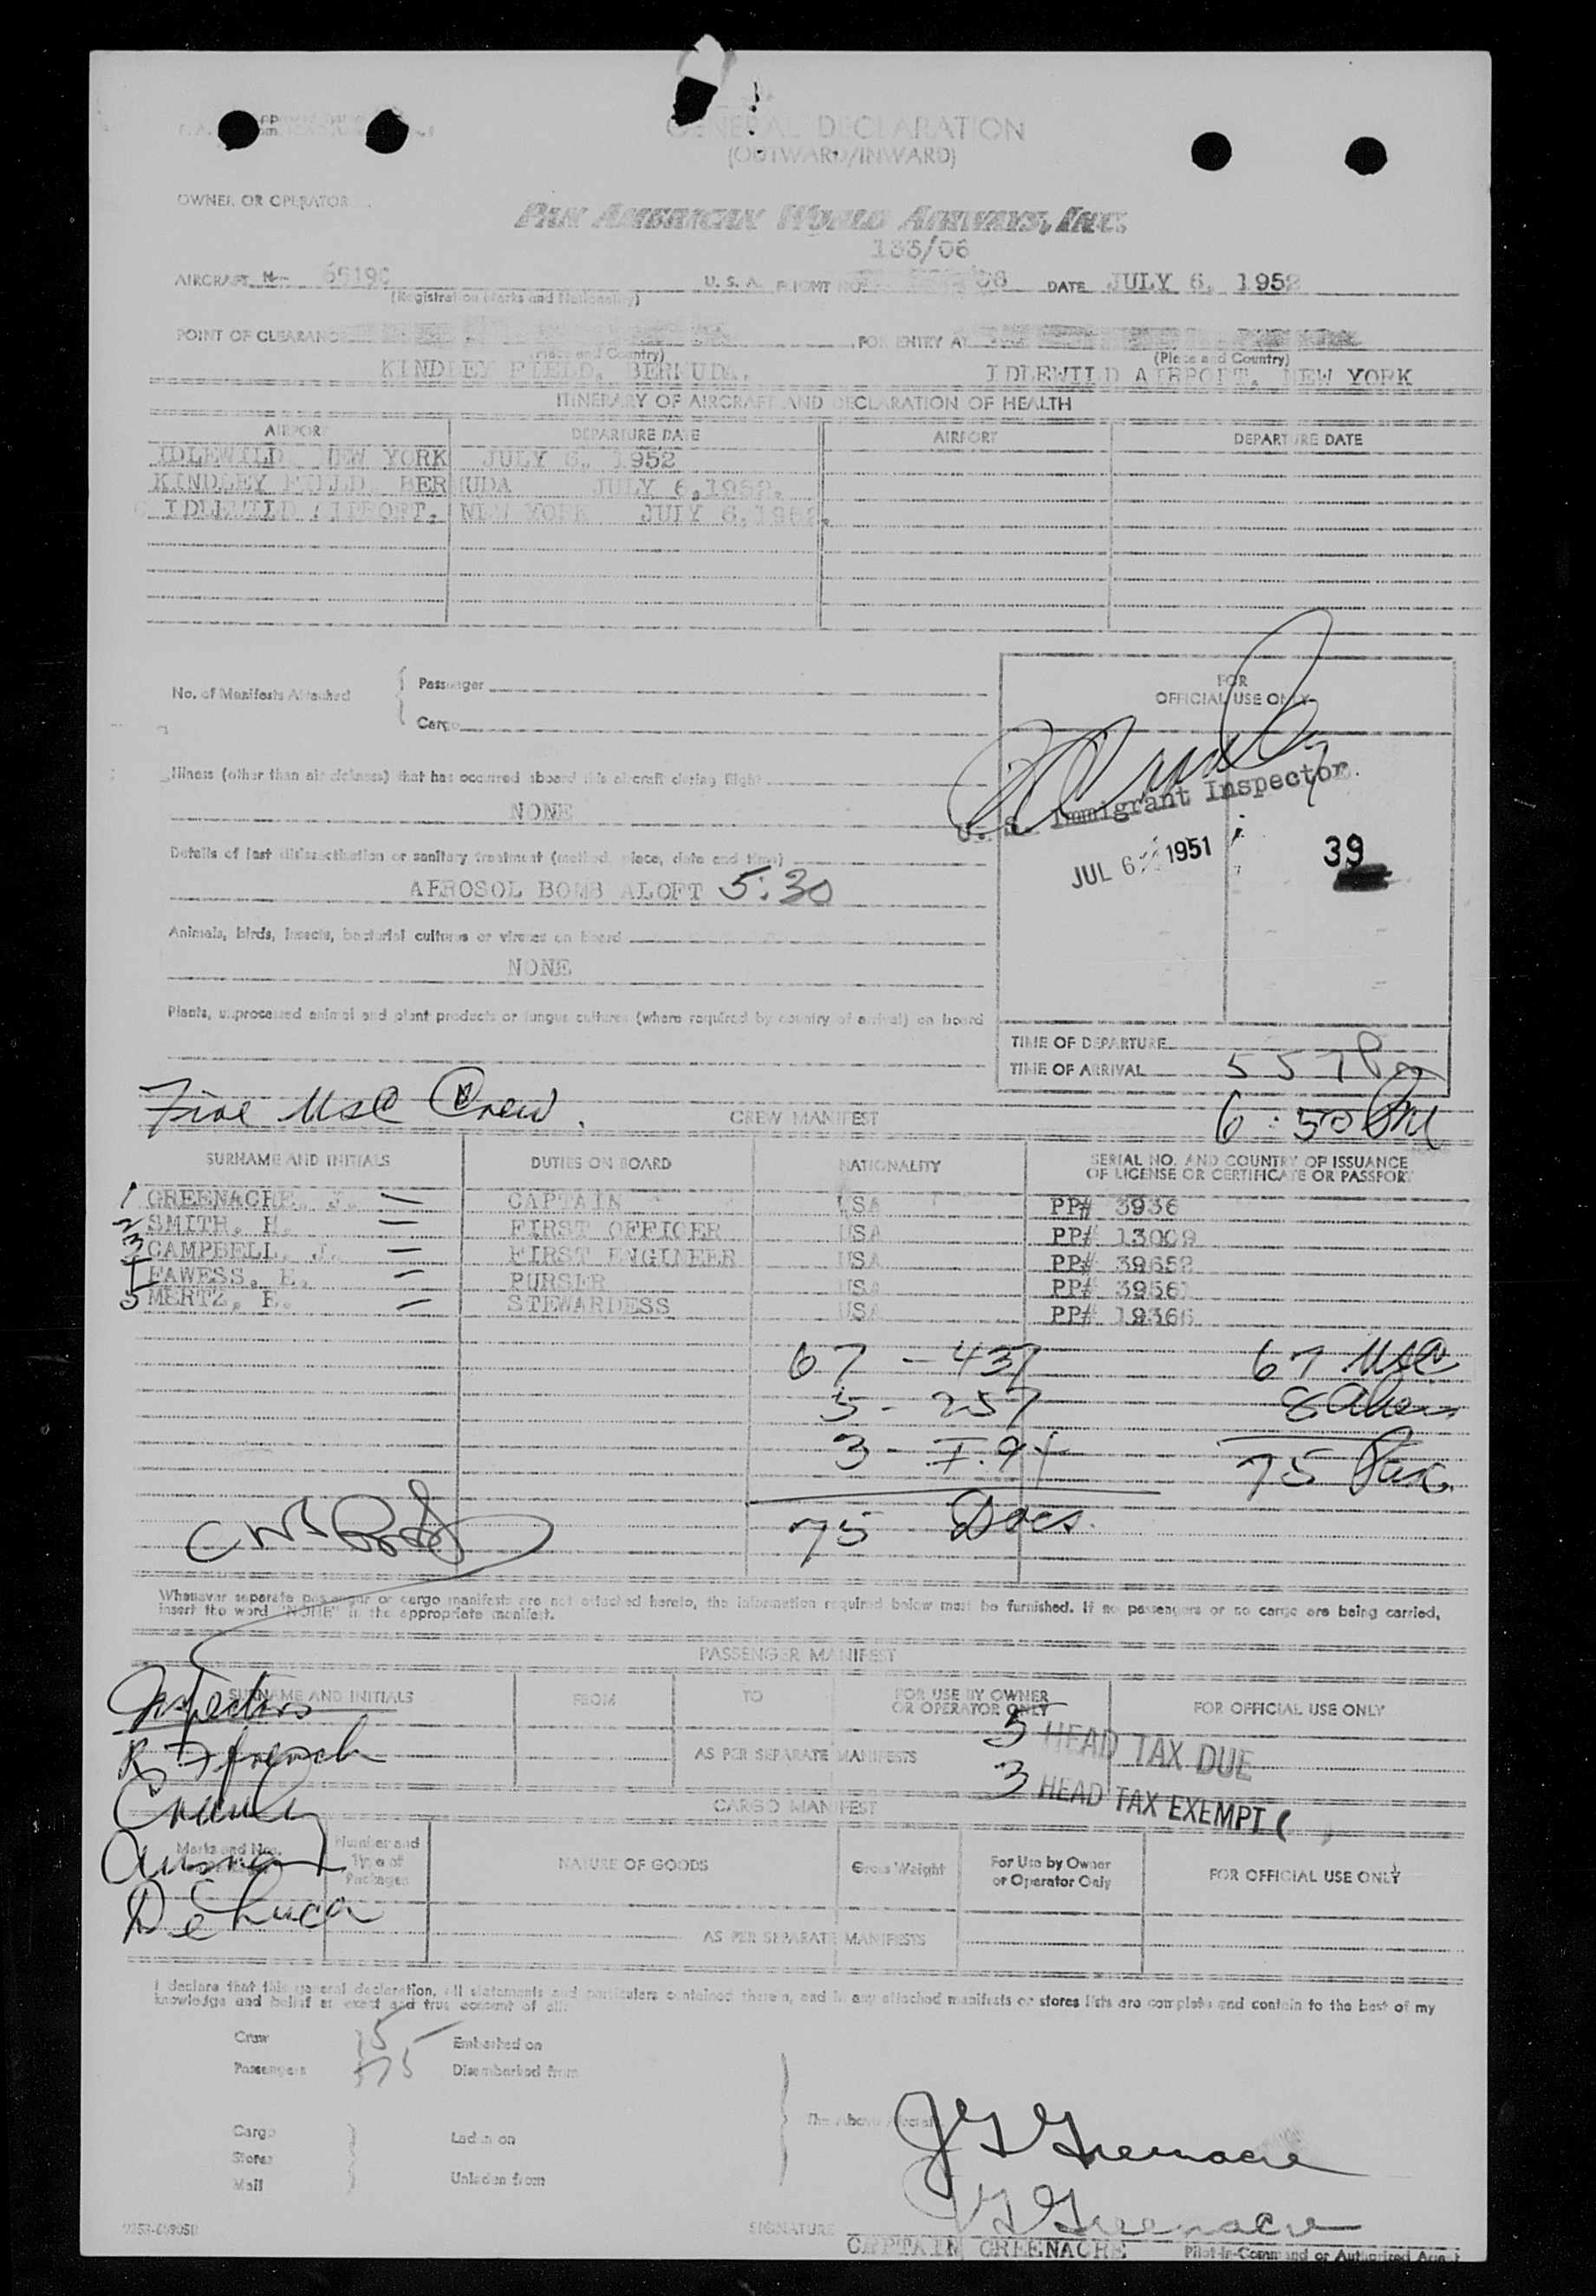 GENERAL DECLARATION
(OUTWARD/INWARD)
OWNER OR OPERATOR
PAN AMERICAN WORLD AIRWAYS, INC.
133/06
AIRCRAFT N- 6519C U. S. A. FLIGHT NO. 06 DATE JULY 6, 1952
(Registration Marks and Nationality)
POINT OF CLEARANCE FOR ENTRY AT
(Place and Country) (Place and Country)
KINDLEY FIELD, BERMUDA. IDLEWILD AIRPORT, NEW YORK
ITINERARY OF AIRCRAFT AND DECLARATION OF HEALTH
AIRPORT DEPARTURE DATE AIRPORT DEPARTURE DATE
IDLEWILD NEW YORK JULY 6, 1952
KINDLEY FIELD, BERMUDA JULY 6,1952.
IDLEWILD AIRPORT, NEW YORK JULY 6,1952.
FOR
OFFICIAL USE ONLY
No. of Manifests Attached { Passenger
Cargo
Illness (other than air sickness) that has occurred aboard this aircraft during flight
NONE
U. S. Immigrant Inspector.
JUL 6 1951 39
Details of last disinsectization or sanitary treatment (method, place, date and time)
AEROSOL BOMB ALOFT 5:30
Animals, birds, insects, bacterial cultures or viruses on board
NONE
Plants, unprocessed animal and plant products or fungus cultures (where required by country of arrival) on board
TIME OF DEPARTURE
TIME OF ARRIVAL 557 Pm
Five USC Crew. CREW MANIFEST 6:50 PM
SURNAME AND INITIALS DUTIES ON BOARD NATIONALITY SERIAL NO. AND COUNTRY OF ISSUANCE
OF LICENSE OR CERTIFICATE OR PASSPORT
1 GREENACRE, J. CAPTAIN USA PP# 3936
2 SMITH, H. FIRST OFFICER USA PP# 13009
3 CAMPBELL, J. FIRST ENGINEER USA PP# 39652
4 FAWESS, E. PURSER USA PP# 39561
5 MERTZ, E. STEWARDESS USA PP# 19366
67 - 437 67 USC
5 - 257 8 Aliens
3 - I.94 75 Pax.
75 Docs.
Whenever separate passenger or cargo manifests are not attached hereto, the information required below must be furnished. If no passengers or no cargo are being carried,
insert the word "NONE" in the appropriate manifest.
PASSENGER MANIFEST
Inspectors
SURNAME AND INITIALS FROM TO FOR USE BY OWNER
OR OPERATOR ONLY FOR OFFICIAL USE ONLY
5 HEAD TAX DUE
R French AS PER SEPARATE MANIFESTS
3 HEAD TAX EXEMPT (
CARGO MANIFEST
Marks and Nos. Number and
Type of
Packages NATURE OF GOODS Gross Weight For Use by Owner
or Operator Only FOR OFFICIAL USE ONLY
De Luca
AS PER SEPARATE MANIFESTS
I declare that this general declaration, all statements and particulars contained therein, and in any attached manifests or stores lists are complete and contain to the best of my
knowledge and belief an exact and true account of all:
Crew 5 Embarked on
Passengers 75 Disembarked from
The Above Aircraft
Cargo Laden on
Stores
Mail Unladen from
J G Greenacre
J G Greenacre
SIGNATURE
CAPTAIN GREENACRE Pilot-in-Command or Authorized Agent